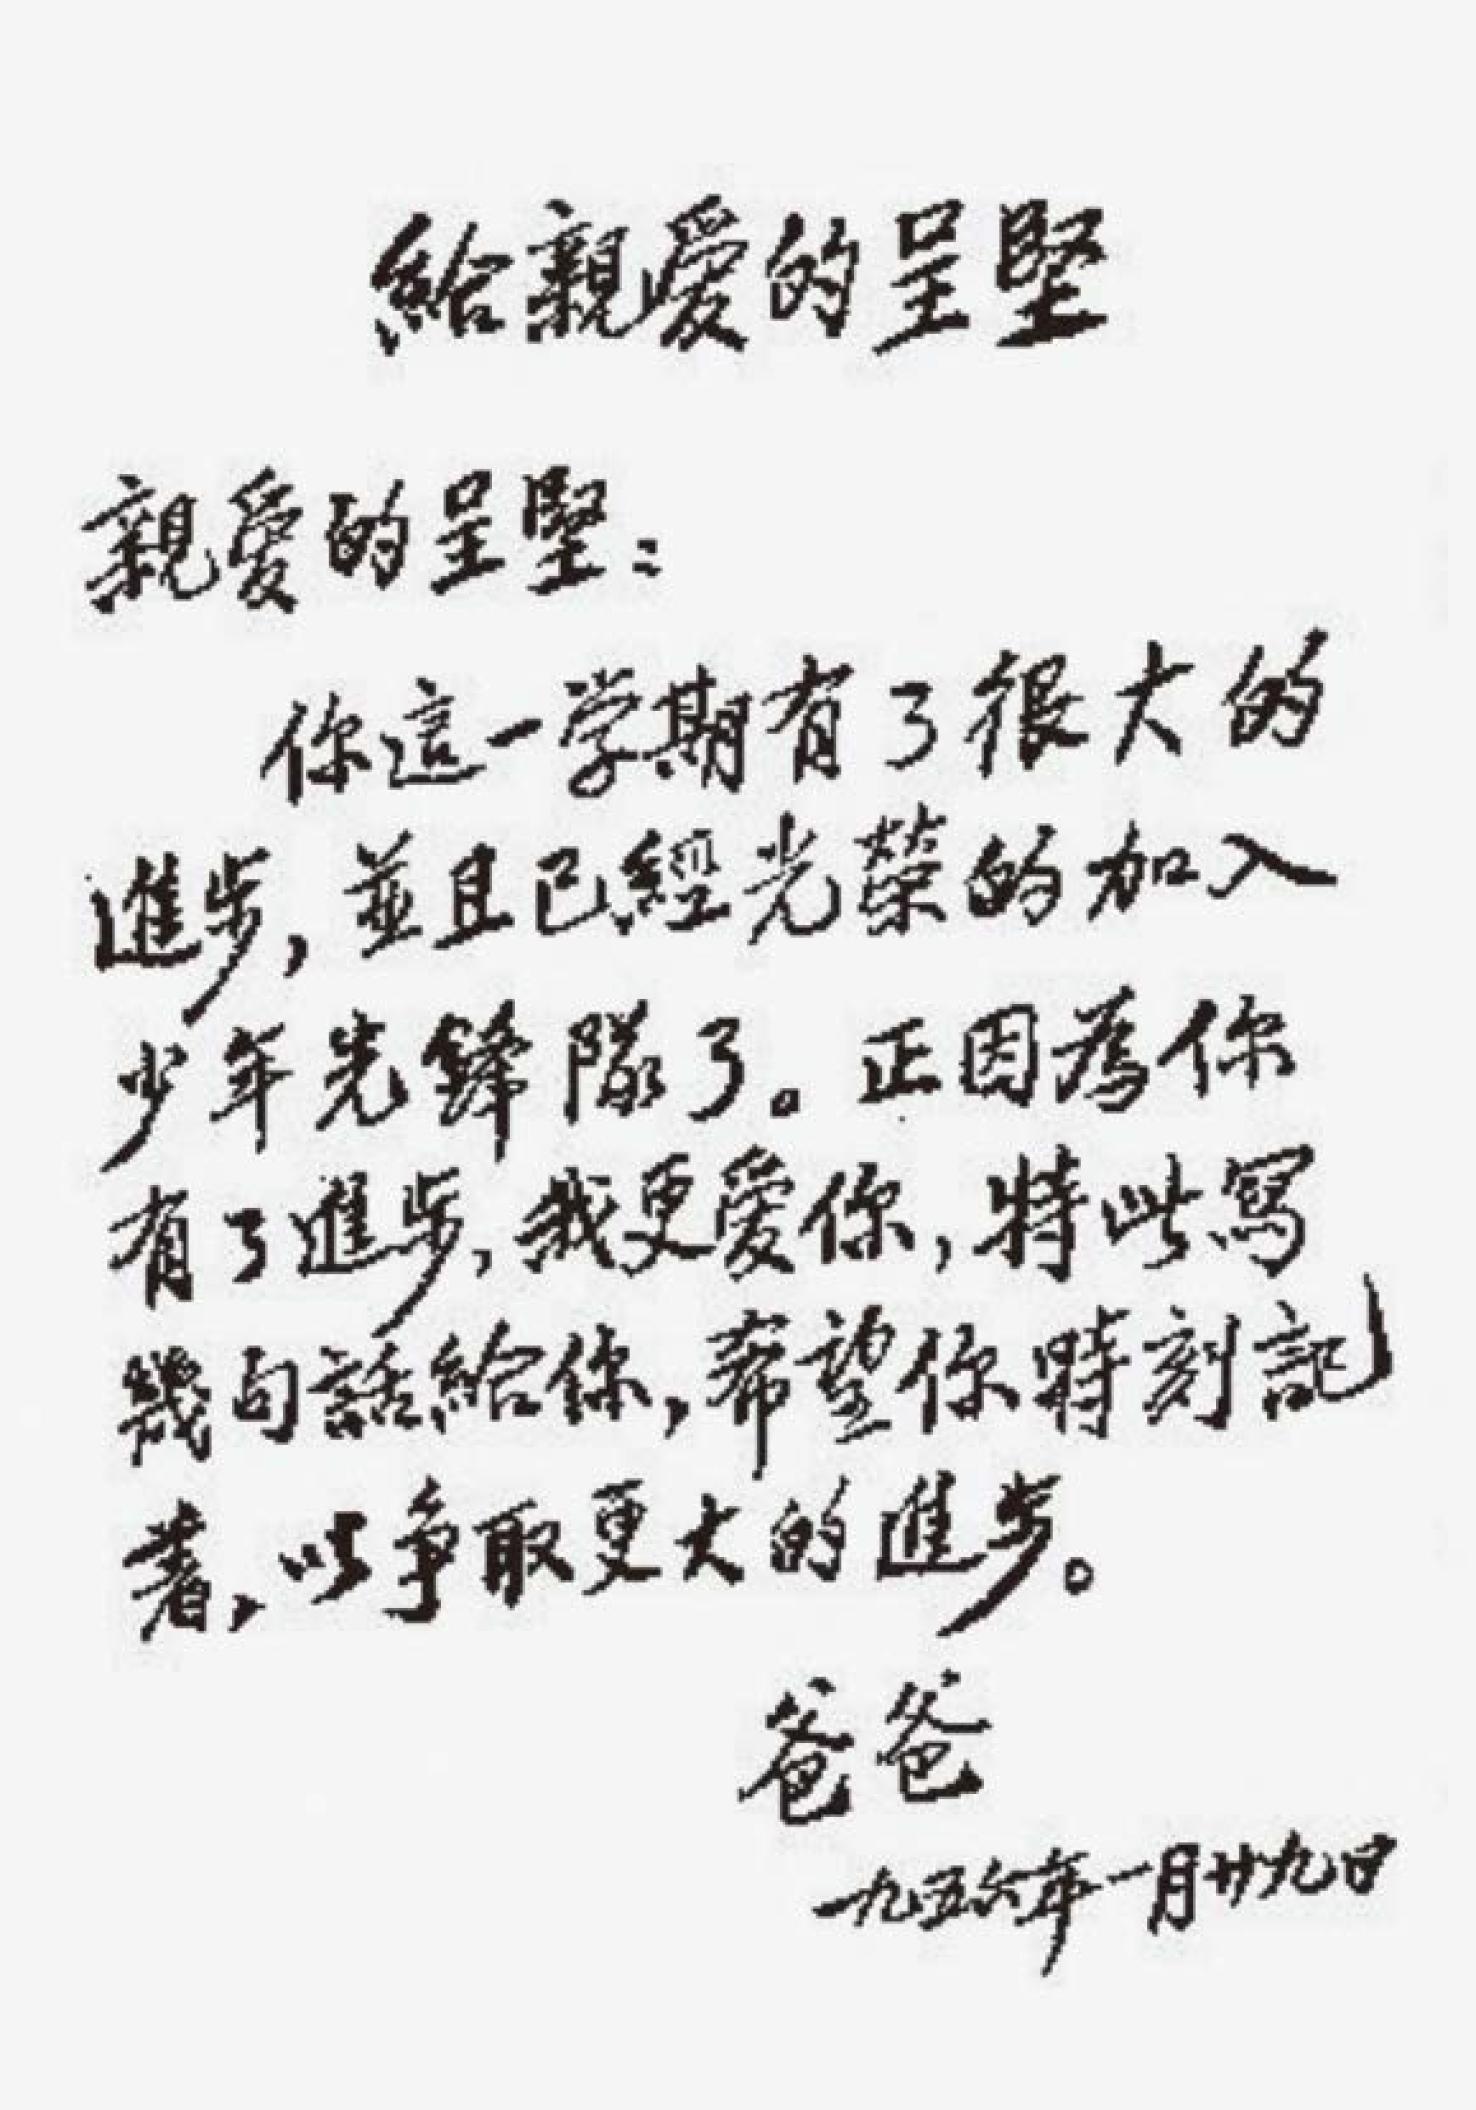 給親愛的呈堅
親愛的呈堅：
你這一学期有了很大的
進步，並且已經光榮的加入
少年先鋒隊了。正因為你
有了進步，我更愛你，特此寫
幾句話給你，希望你時刻記
著，以爭取更大的進步。
爸爸
一九五六年一月廿九日